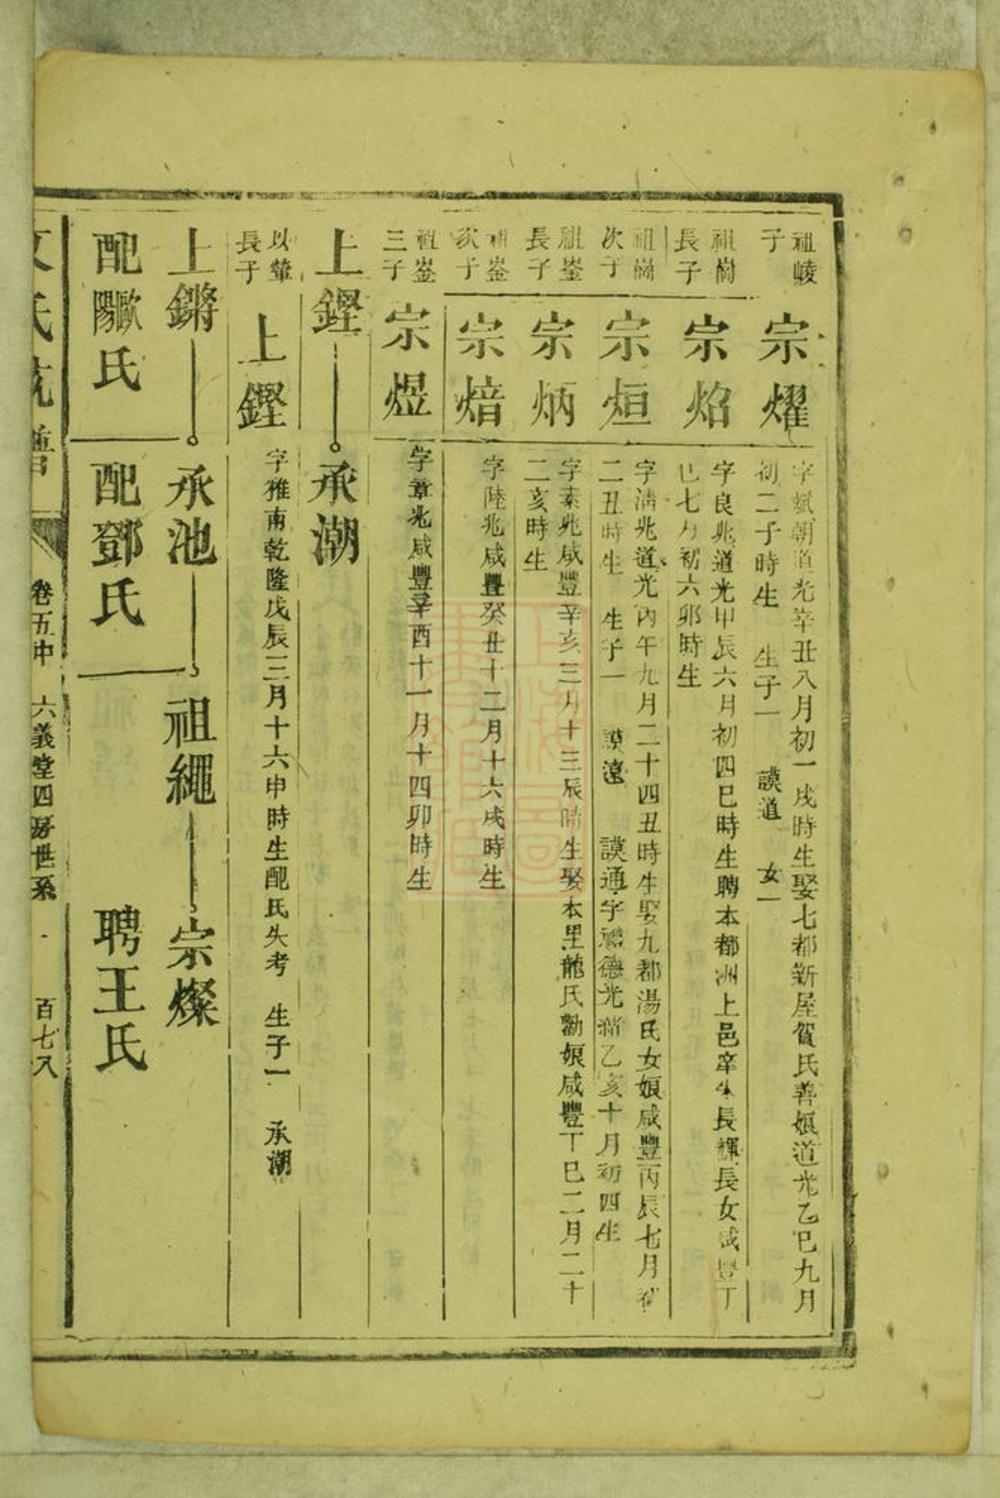 祖崚子
宗燿
字斌朝道光辛丑八月初一戌時生娶七都新屋賀氏善娘道光乙巳九月
初二子時生 生子一 謨道 女一
祖崗長子
宗焰
字良兆道光甲辰六月初四巳時生聘本都洲上邑庠生長輝長女咸豐丁
巳七月初六卯時生
祖崗次子
宗烜
字淸兆道光丙午九月二十四丑時生娶九都湯氏女娘咸豐丙辰七月初
二丑時生 生子一 謨遠 謨通字 德光緒乙亥十月初四生
祖崟長子
宗炳
字素兆咸豐辛亥三月十三辰時生娶本里龍氏勤娘咸豐丁巳二月二十
二亥時生
祖崟次子
宗焙
字陸兆咸豐癸丑十二月十六戌時生
祖崟三子
宗煜
字章兆咸豐辛酉十一月十四卯時生
上鏗 承潮
以輦長子
上鏗
字雅南乾隆戊辰三月十六申時生配氏失考 生子一 承潮
上鏘 承池 祖繩 宗燦
配歐陽氏 配鄧氏 聘王氏
文氏 譜 卷五中 六義堂四房世系 百七八